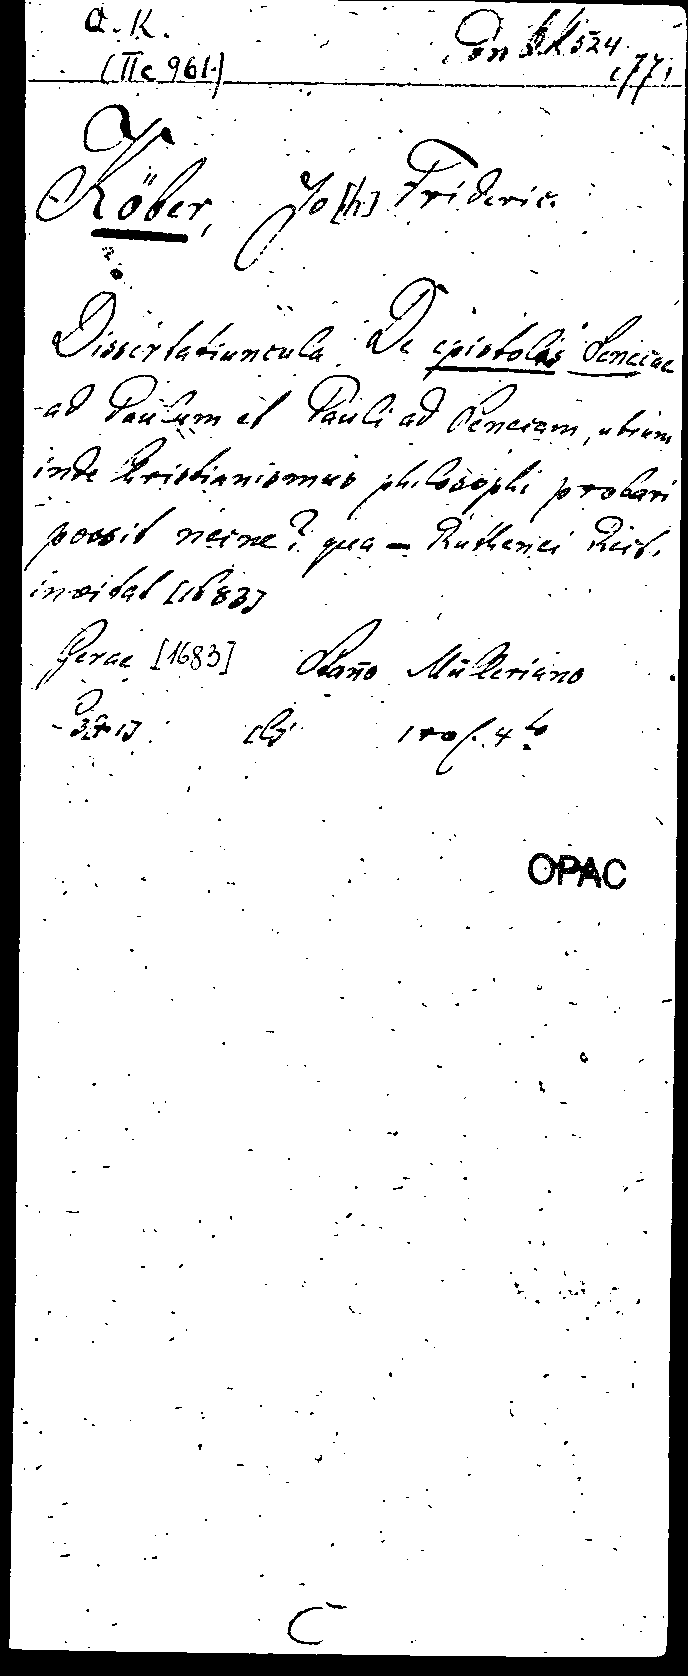 a. K.
(IIc 961.)
Pon IIK 524
(77)
Köber, Jo[h] Frideric.
Dissertatiuncula De epistolis Senecae
ad Paulum et Pauli ad Senecam, utrum
inde Christianismus philosophi probari
possit necne? qua — Ruthenei Rect.
invitat [1683]
Gerae [1683] Müleriano
4to
OPAC
C